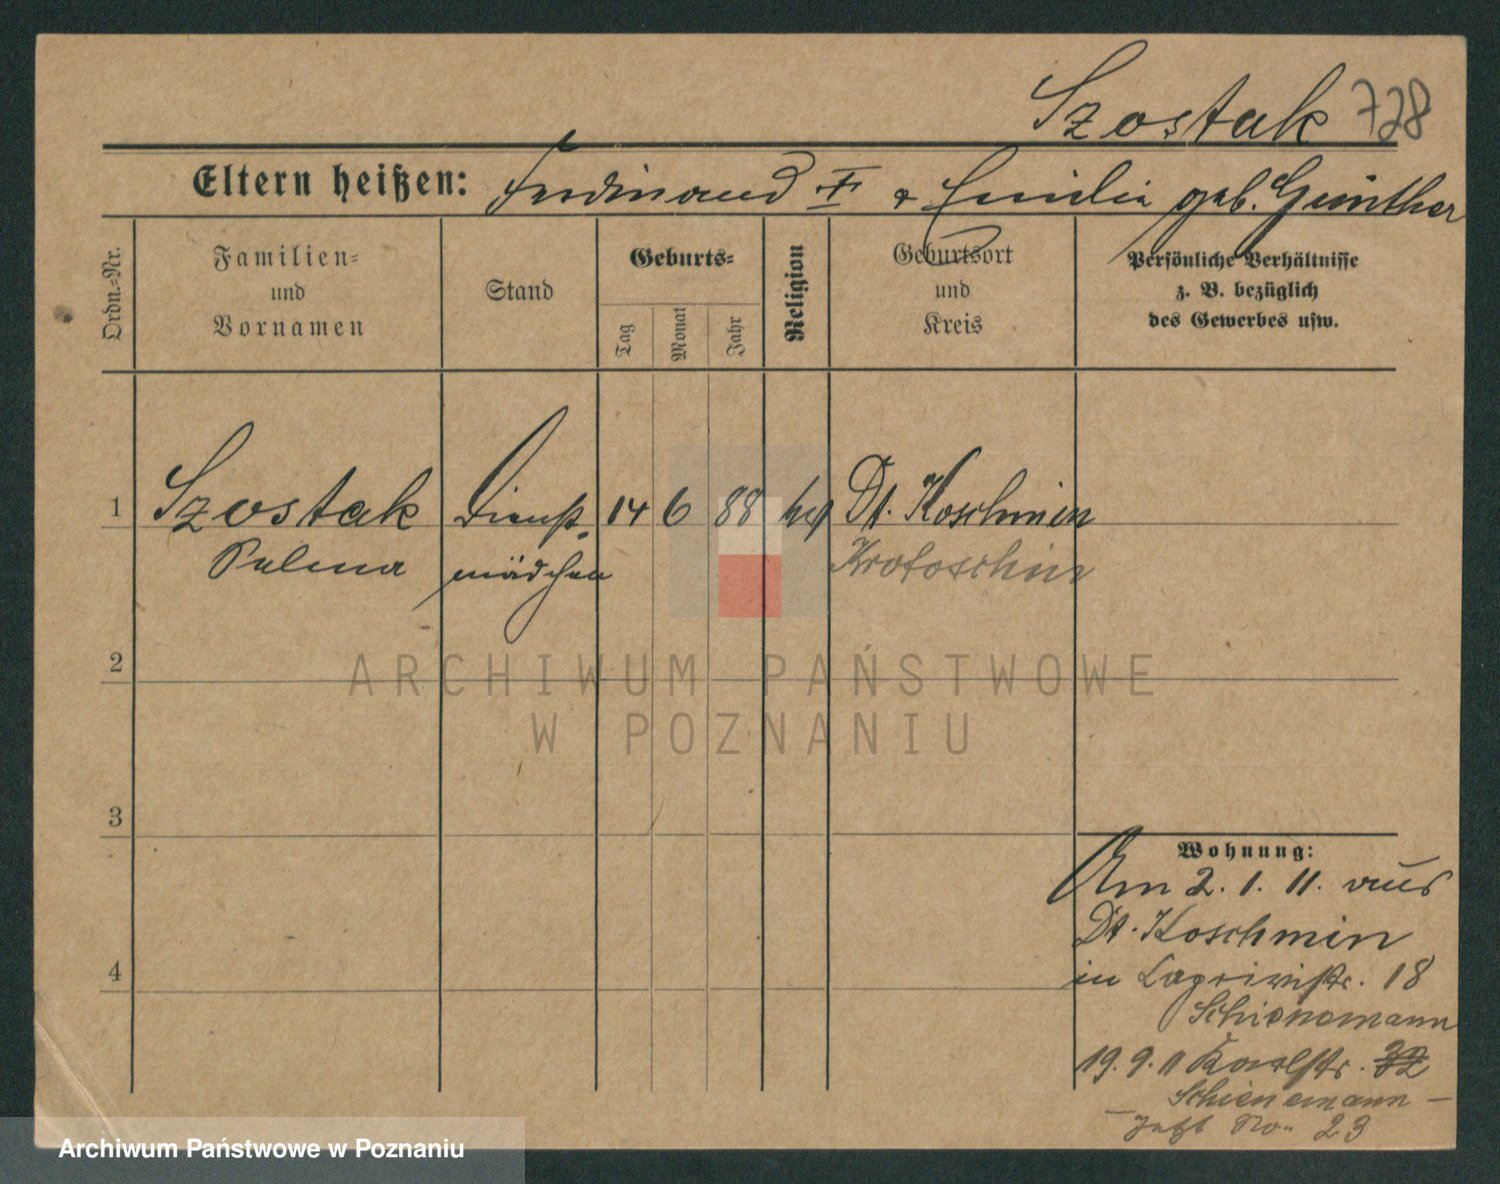 Szostak 728
Eltern heißen: Ferdinand † & Emilie geb. Günther
Ordn.-Nr.
Familien-
und
Vornamen
Stand
Geburts-
Tag
Monat
Jahr
Religion
Geburtsort
und
Kreis
Persönliche Verhältnisse
z. B. bezüglich
des Gewerbes usw.
1 Szostak Dienst- 14 6 88 Dt. Koschmin
mädchen Krotoschin
2
3
4
Wohnung:
Am 2. 1. 11. aus
Dt. Koschmin
in 18
Schienemann
19. 9. 11 Karlstr. 32
Schienemann
Jetzt No. 23
ARCHIWUM PAŃSTWOWE
W POZNANIU
Archiwum Państwowe w Poznaniu